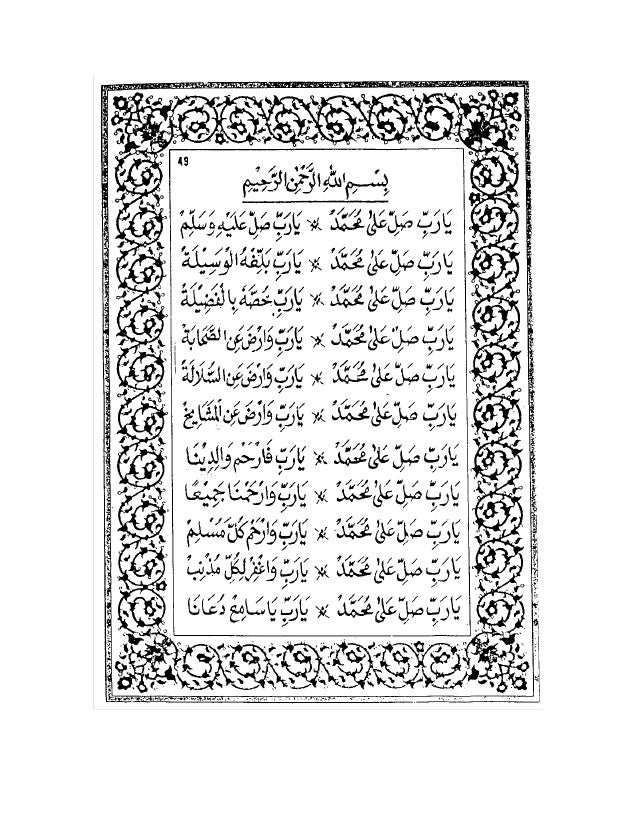 49
بِسْــمِ اللهِ الرَّحْمٰنِ الرَّحِيْمِ
يَارَبِّ صَلِّ عَلىٰ مُحَمَّدْ * يَارَبِّ صَلِّ عَلَيْهِ وَسَلِّمْ
يَارَبِّ صَلِّ عَلىٰ مُحَمَّدْ * يَارَبِّ بَلِّغْهُ الْوَسِيْلَةْ
يَارَبِّ صَلِّ عَلىٰ مُحَمَّدْ * يَارَبِّ خُصَّهُ بِالْفَضِيْلَةْ
يَارَبِّ صَلِّ عَلىٰ مُحَمَّدْ * يَارَبِّ وَارْضَ عَنِ الصَّحَابَةْ
يَارَبِّ صَلِّ عَلىٰ مُحَمَّدْ * يَارَبِّ وَارْضَ عَنِ السُّلَالَةْ
يَارَبِّ صَلِّ عَلىٰ مُحَمَّدْ * يَارَبِّ وَارْضَ عَنِ الْمَشَايِخْ
يَارَبِّ صَلِّ عَلىٰ مُحَمَّدْ * يَارَبِّ فَارْحَمْ وَالِدِيْنَا
يَارَبِّ صَلِّ عَلىٰ مُحَمَّدْ * يَارَبِّ وَارْحَمْنَا جَمِيْعًا
يَارَبِّ صَلِّ عَلىٰ مُحَمَّدْ * يَارَبِّ وَارْحَمْ كُلَّ مُسْلِمْ
يَارَبِّ صَلِّ عَلىٰ مُحَمَّدْ * يَارَبِّ وَاغْفِرْ لِكُلِّ مُذْنِبْ
يَارَبِّ صَلِّ عَلىٰ مُحَمَّدْ * يَارَبِّ يَا سَامِعْ دُعَانَا